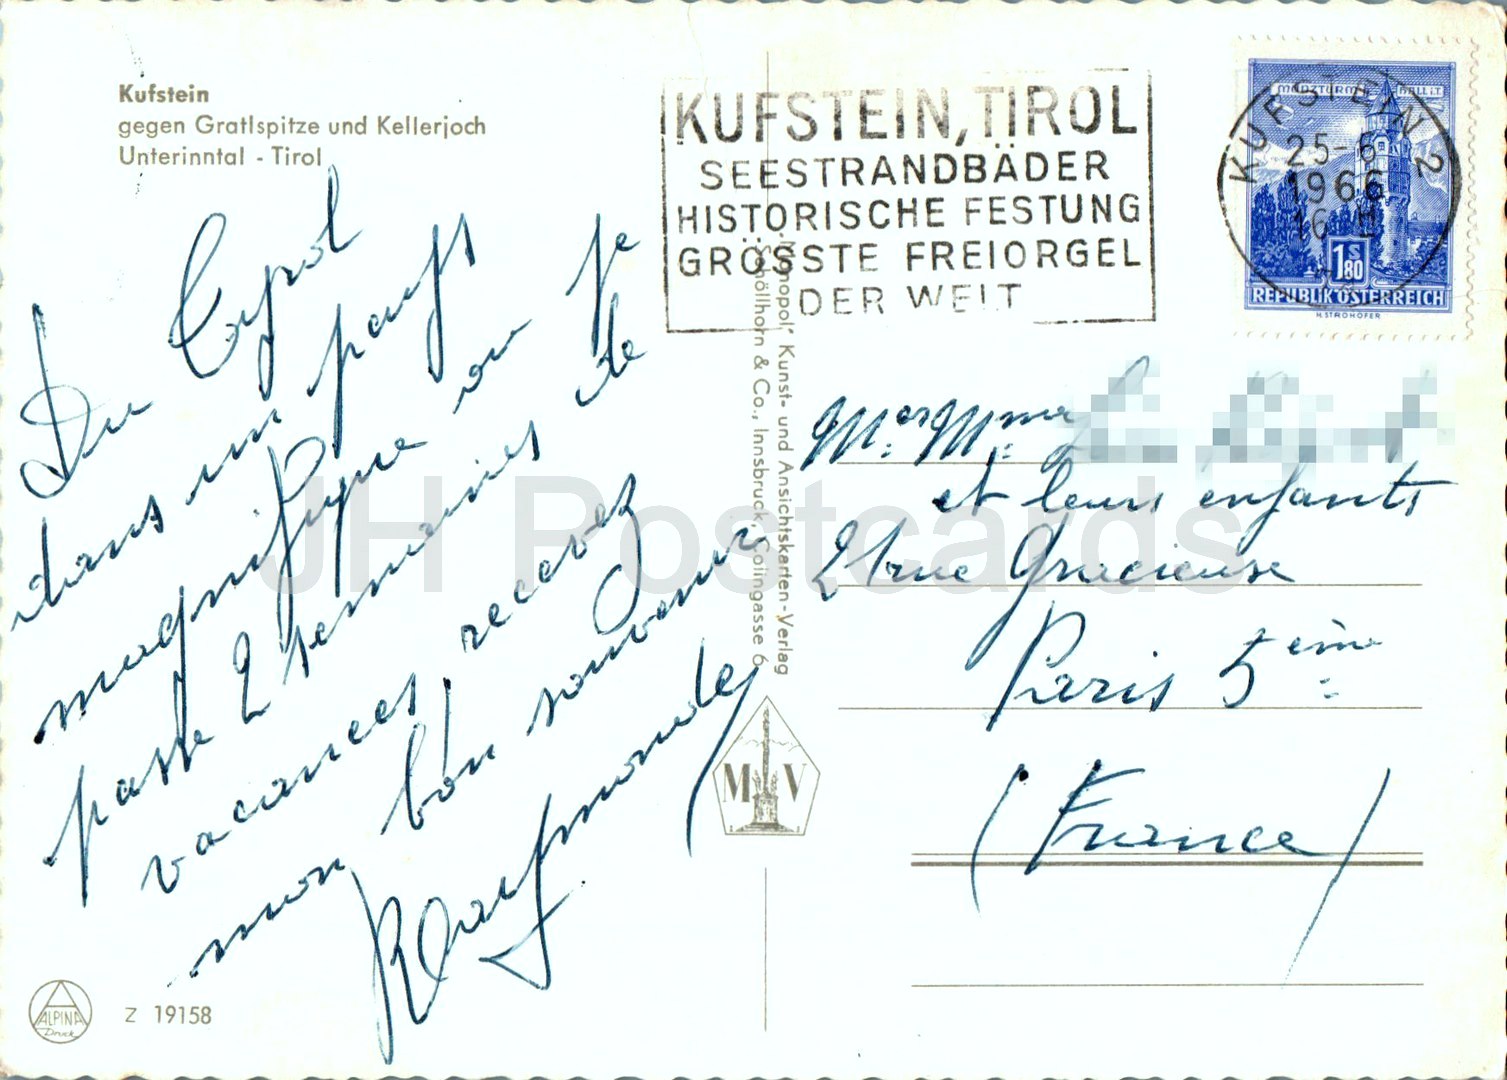 Kufstein
gegen Gratlspitze und Kellerjoch
Unterinntal - Tirol
KUFSTEIN, TIROL
SEESTRANDBÄDER
HISTORISCHE FESTUNG
GRÖSSTE FREIORGEL
DER WELT
KUFSTEIN 2
25-6
1966
16
MÜNZTURM HALL i.T.
1S80
REPUBLIK ÖSTERREICH
H. STROHOFER
Du Tyrol
dans un pays
magnifique ou je
passe 2 semaines de
vacances, recevez
mon bon souvenir
Raymonde
"Monopol" Kunst- und Ansichtskarten-Verlag
Schöllhorn & Co., Innsbruck, Colingasse 6
M V
Mr et Mme
et leurs enfants
21 rue Gracieuse
Paris 5ème
(France)
ALPINA
Druck
Z 19158
JH Postcards